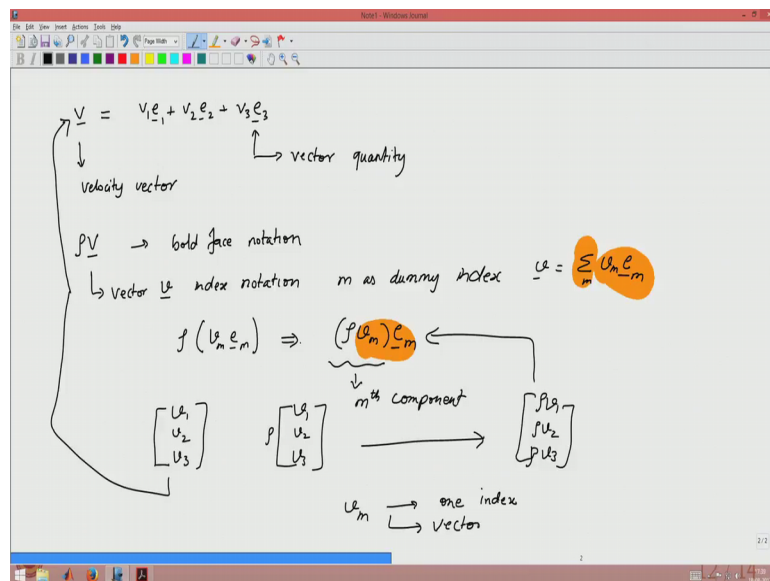 Note1 - Windows Journal
File Edit View Insert Actions Tools Help
Page Width
B I
v = v1 e1 + v2 e2 + v3 e3
vector quantity
velocity vector
ρv → bold face notation
vector v ndex notation m as dummy index v = Σm vm em
ρ(vm em) ⇒ (ρvm) em
mth component
[v1 v2 v3] ρ[v1 v2 v3] → [ρv1 ρv2 ρv3]
vm → one index
vector
2/2
2